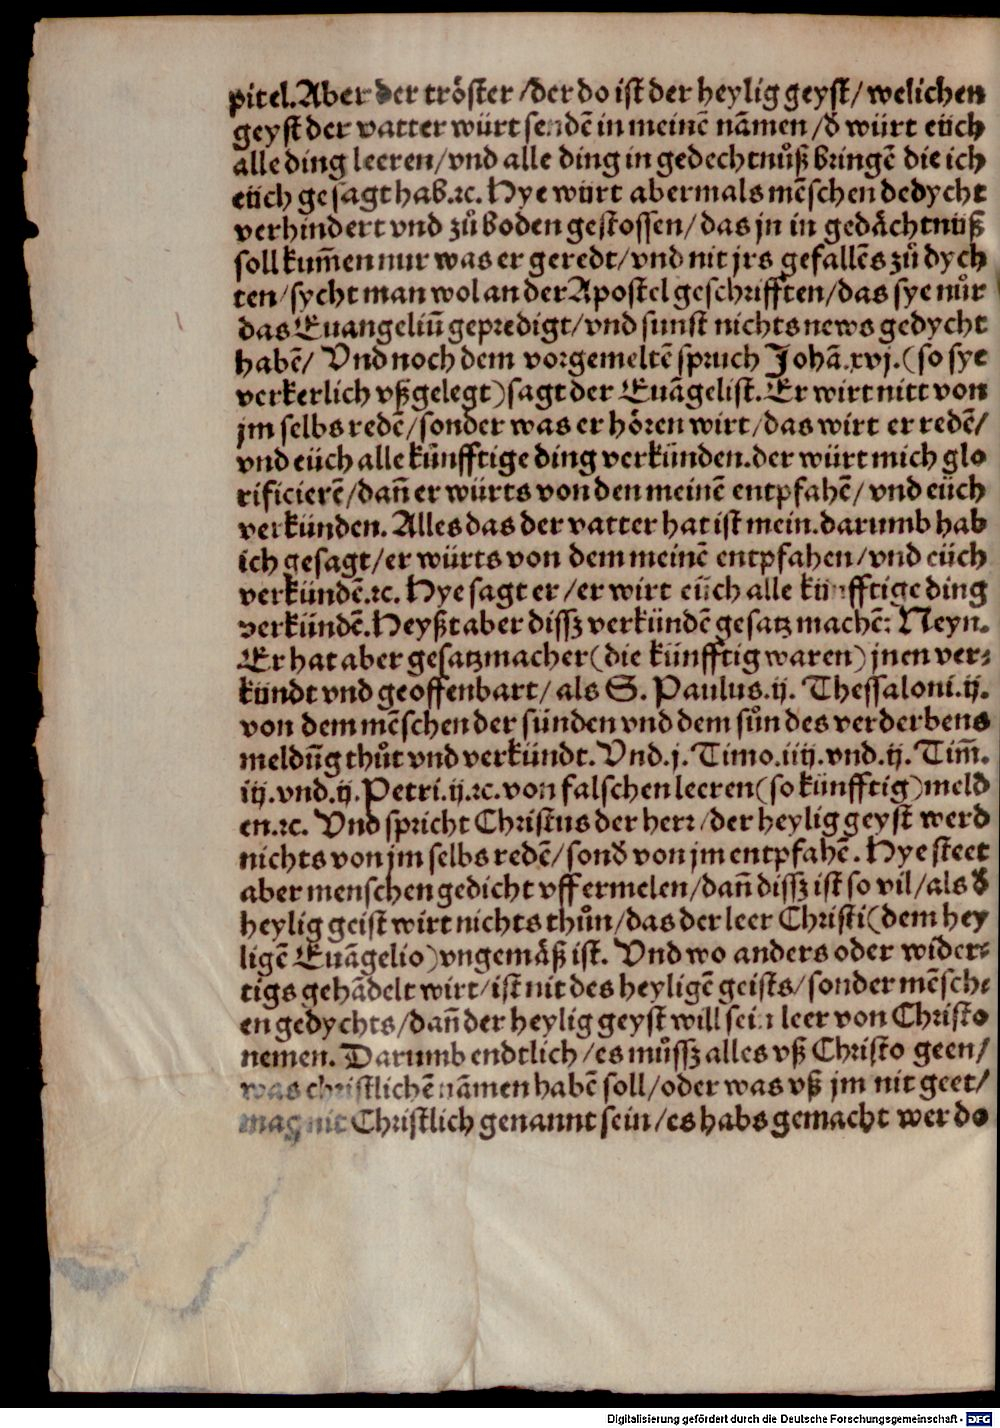 pitel. Aber der tröster / der do ist der heylig geyst / welichen
geyst der vatter würt sendē in meinē nãmen / d̄ würt eüch
alle ding leeren / vnd alle ding in gedechtnůß bringē die ich
eüch gesagt hab. ꝛc. Hye würt abermals mēschen dedycht
verhindert vnd zů boden gestossen / das jn in gedächtnüß
soll kum̄en nur was er geredt / vnd nit jrs gefallēs zů dych
ten / sycht man wol an der Apostel geschrifften / das sye nůr
das Euangeliū gepredigt / vnd sunst nichts news gedycht
habē / Vnd noch dem vorgemeltē spruch Johã. xvj. (so sye
verkerlich vßgelegt) sagt der Euãgelist. Er wirt nitt von
jm selbs redē / sonder was er hören wirt / das wirt er redē /
vnd eüch alle künfftige ding verkünden. der würt mich glo
rificierē / dan̄ er würts von den meinē entpfahē / vnd eüch
verkünden. Alles das der vatter hat ist mein. darumb hab
ich gesagt / er würts von dem meinē entpfahen / vnd eüch
verkündē. ꝛc. Hye sagt er / er wirt eüch alle künfftige ding
verkündē. Heyßt aber dissz verkündē gesatz machē: Neyn.
Er hat aber gesatzmacher (die künfftig waren) jnen ver⸗
kündt vnd geoffenbart / als S. Paulus. ij. Thessaloni. ij.
von dem mēschen der sünden vnd dem sůn des verderbens
meldūg thůt vnd verkündt. Vnd. j. Timo. iiij. vnd. ij. Tim̄.
iij. vnd. ij. Petri. ij. ꝛc. von falschen leeren (so künfftig) meld
en. ꝛc. Vnd spricht Christus der herr / der heylig geyst werd
nichts von jm selbs redē / sond̄ von jm entpfahē. Hye steet
aber menschen gedicht vff ermelen / dan̄ dissz ist so vil / als d̄
heylig geist wirt nichts thůn / das der leer Christi (dem hey
ligē Euãgelio) vngemäß ist. Vnd wo anders oder wider⸗
tigs gehãdelt wirt / ist nit des heyligē geists / sonder mēsch⸗
en gedychts / dan̄ der heylig geyst will sein leer von Christo
nemen. Darumb endtlich / es můssz alles vß Christo geen /
was christlichē nãmen habē soll / oder was vß jm nit geet /
mag nit Christlich genannt sein / es habs gemacht wer do
Digitalisierung gefördert durch die Deutsche Forschungsgemeinschaft - DFG